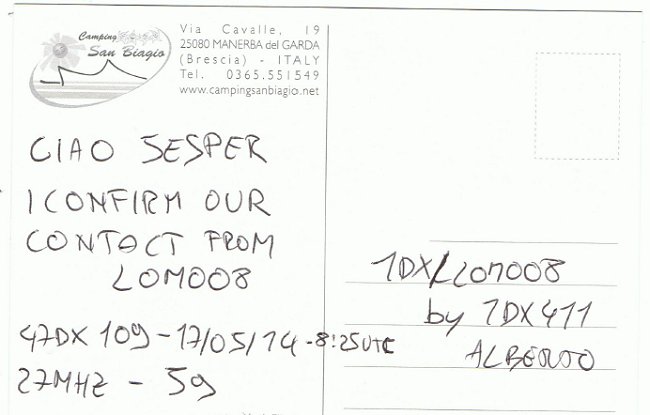 Camping
San Biagio
Via Cavalle, 19
25080 MANERBA del GARDA
(Brescia) - ITALY
Tel. 0365.551549
www.campingsanbiagio.net
CIAO SESPER
I CONFIRM OUR
CONTACT FROM
LOM008
47DX 109 - 17/05/14 - 8:25 UTC
27MHZ - 59
1DX/LOM008
by 1DX411
ALBERTO